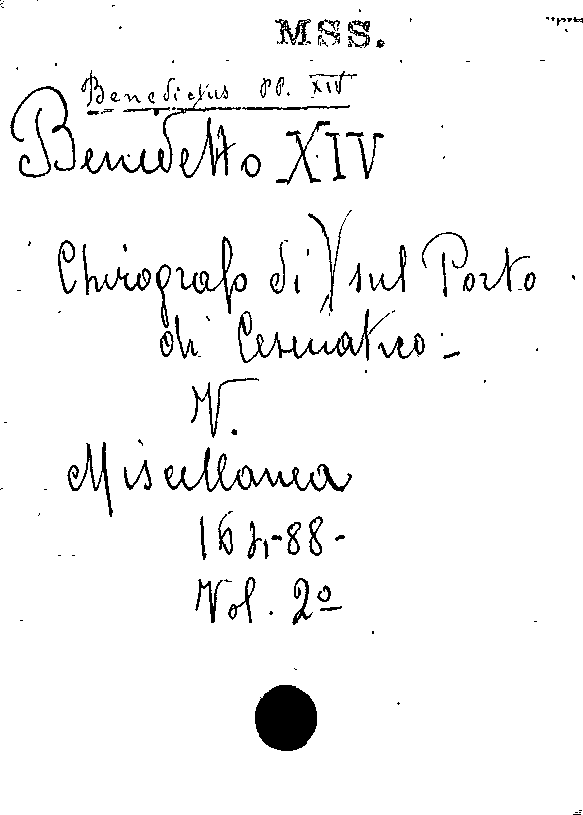 MSS.
Benedictus PP. XIV
Benedetto XIV
Chirografo di ) sul Porto
di Cesenatico -
V.
Miscellanea
-88-
Vol. 2º